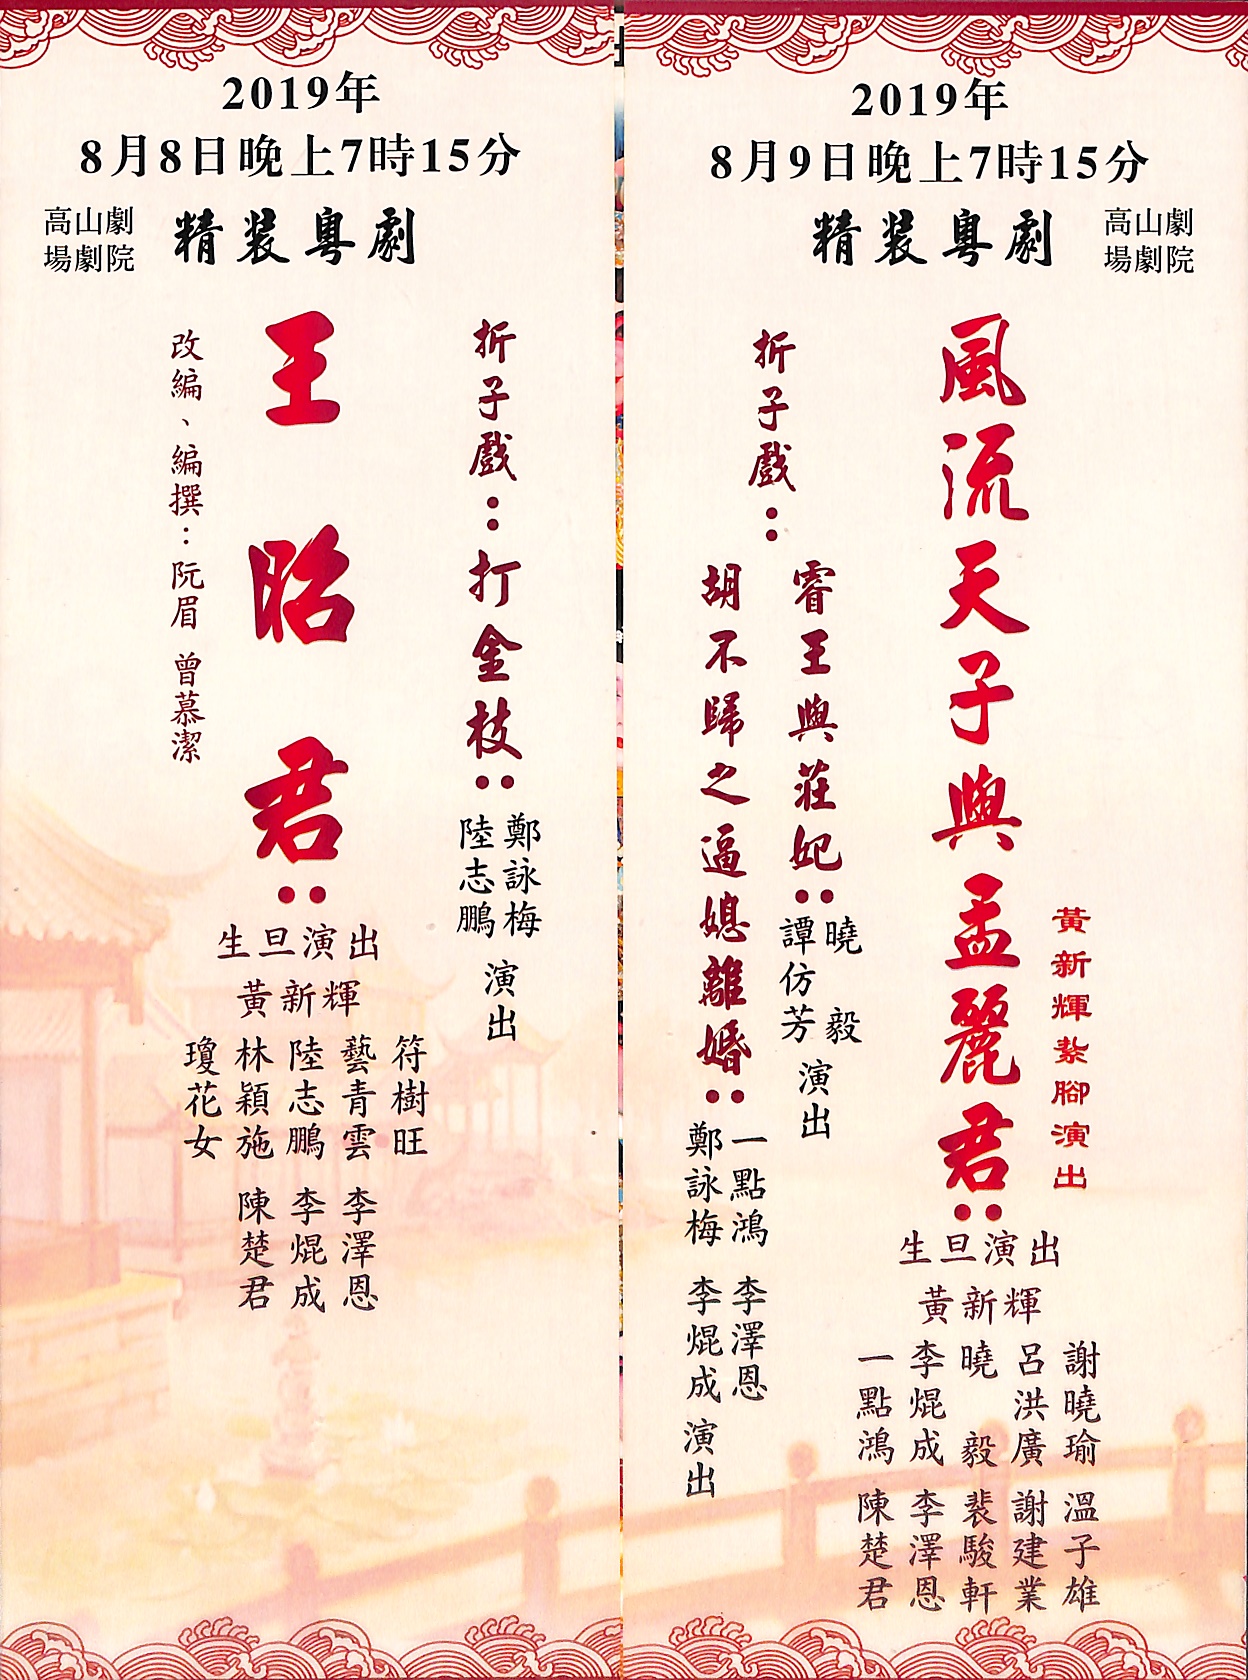 2019年
8月8日晚上7時15分
高山劇
場劇院
精裝粵劇
折子戲：打金枝：
鄭詠梅
陸志鵬
演出
王昭君：
改編、編撰：阮眉 曾慕潔
生旦演出
黃新輝
符樹旺
藝青雲 李澤恩
陸志鵬 李焜成
林穎施 陳楚君
瓊花女
2019年
8月9日晚上7時15分
精裝粵劇
高山劇
場劇院
黃新輝紮腳演出
風流天子與孟麗君：
生旦演出
黃新輝
謝曉瑜 溫子雄
呂洪廣 謝建業
曉毅 裴駿軒
李焜成 李澤恩
一點鴻 陳楚君
折子戲：
睿王與莊妃：
曉毅
譚仿芳
演出
胡不歸之逼媳離婚：
一點鴻 李澤恩
鄭詠梅 李焜成
演出